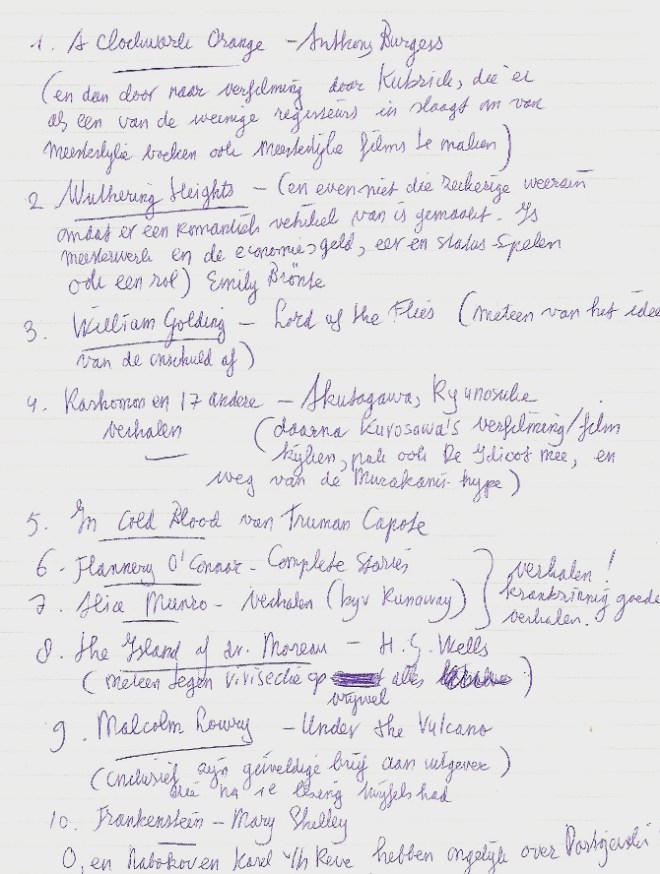 1. A Clockwork Orange - Anthony Burgess
(en dan door naar verfilming door Kubrick, die er
als een van de weinige regisseurs in slaagt om van
meesterlijke boeken ook meesterlijke films te maken)
2 Wuthering Heights - (en even niet die zeikerige weersin
omdat er een romantisch vehikel van is gemaakt. Is
meesterwerk en de economie, geld, eer en status-spelen
ook een rol) Emily Brönte
3. William Golding - Lord of the Flies (meteen van het idee
van de onschuld af)
4. Rashomon en 17 andere - Akutagawa, Ryunosuke
verhalen (daarna Kurosawa's verfilming/film
kijken, pak ook De Idioot mee, en
weg van de Murakami-hype)
5. In Cold Blood van Truman Capote
6. Flannery O'Connor - Complete Stories
7. Alice Munro - verhalen (bijv Runaway)
verhalen!
krankzinnig goede
verhalen.
8. The Island of dr. Moreau - H.G. Wells
(meteen tegen vivisectie op alles)
vrijwel
9. Malcolm Lowry - Under the Vulcano
(inclusief zijn geweldige brief aan uitgever)
die na 1e lezing twijfels had
10. Frankenstein - Mary Shelley
O, en Nabokov en Karel v/h Reve hebben ongelijk over Dostojevski